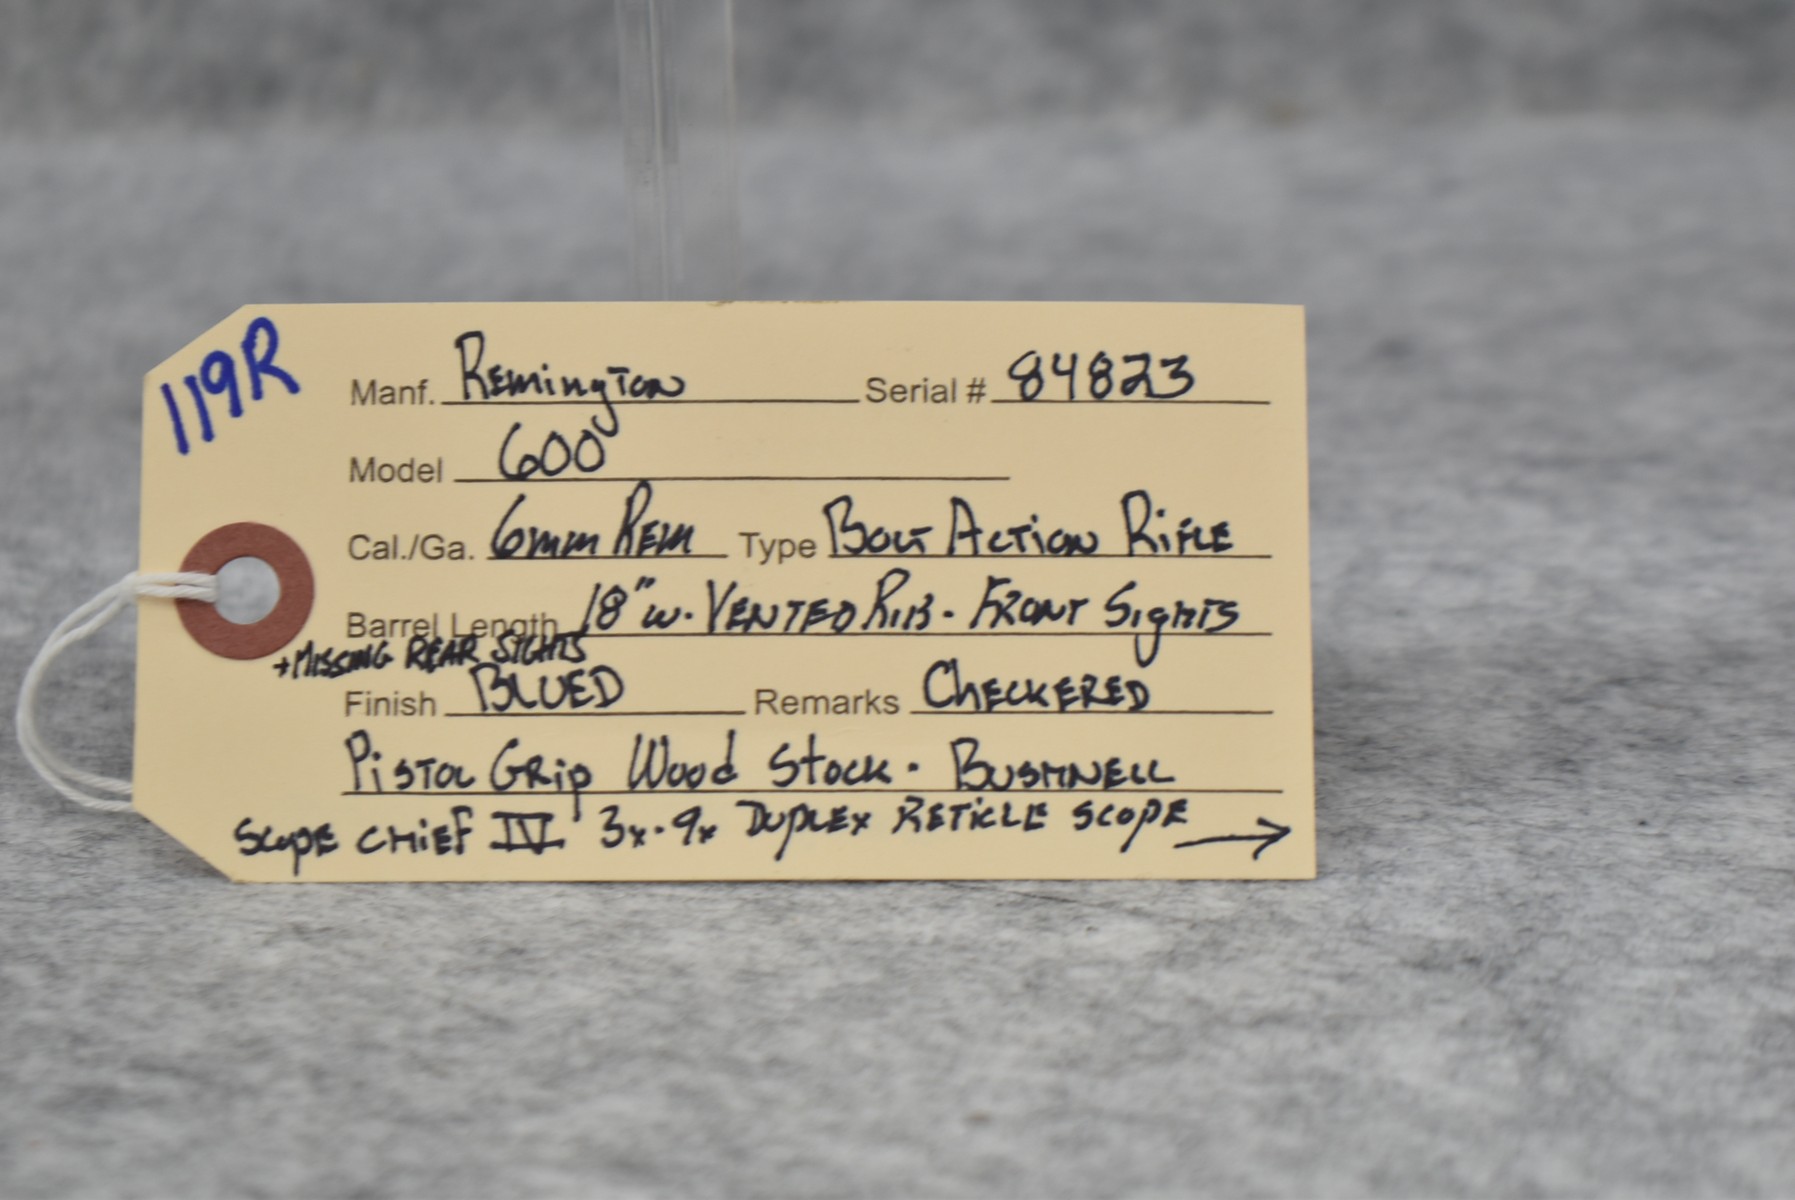 119R
Manf. Remington Serial # 84823
Model 600
Cal./Ga. 6mm Rem Type Bolt Action Rifle
Barrel Length 18" w. Vented Rib - Front Sights
+ Missing Rear Sights
Finish Blued Remarks Checkered
Pistol Grip Wood Stock. Bushnell
Scope Chief IV 3x-9x Duplex Reticle Scope →